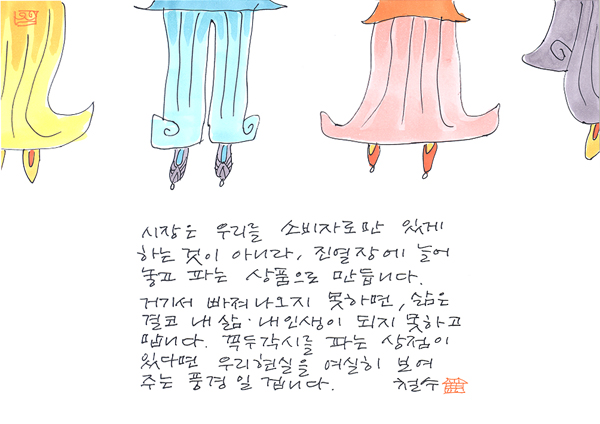 시장은 우리를 소비자로만 있게
하는 것이 아니라, 진열장에 늘어
놓고 파는 상품으로 만듭니다.
거기서 빠져나오지 못하면, 삶은
결코 내 삶·내 인생이 되지 못하고
맙니다. 꼭두각시를 파는 상점이
있다면 우리현실을 여실히 보여
주는 풍경일 겁니다. 철수